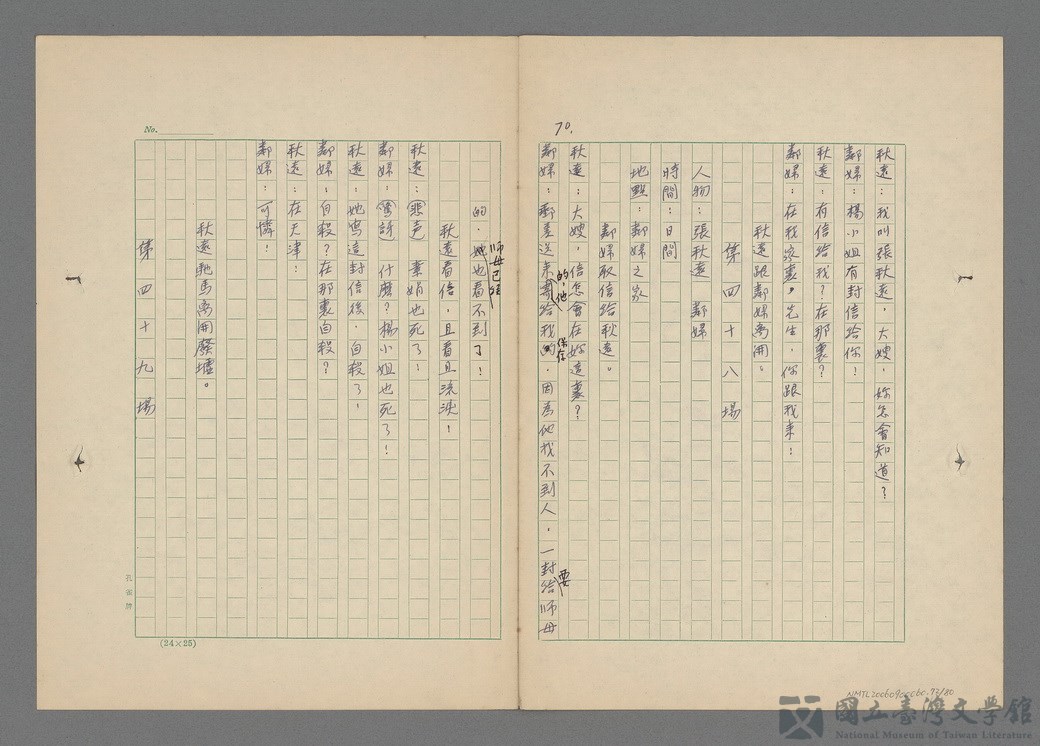 70.
秋遠：我叫張秋遠，大嫂，妳怎會知道？
鄰婦：楊小姐有封信給你！
秋遠：有信給我？在那裏？
鄰婦：在我家裏，先生，你跟我來！
秋遠跟鄰婦離開。
第四十八場
人物：張秋遠 鄰婦
時間：日間
地點：鄰婦之家
鄰婦取信給秋遠。
秋遠：大嫂，信怎會在妳這裏？
鄰婦：郵差送來的，他寄給我保存的，因為他找不到人，一封要給師母
的，師母已經她也看不到了！
秋遠看信，且看且流淚！
秋遠：（悲声） 素娟也死了！
鄰婦：（驚訝） 什麼？楊小姐也死了！
秋遠：她寫這封信後，自殺了！
鄰婦：自殺？在那裏自殺？
秋遠：在天津！
鄰婦：可憐！
秋遠馳馬离開廢墟。
第四十九場
No.
孔雀牌
(24×25)
NMTL20060900060.72/80
國立臺灣文學館
National Museum of Taiwan Literature